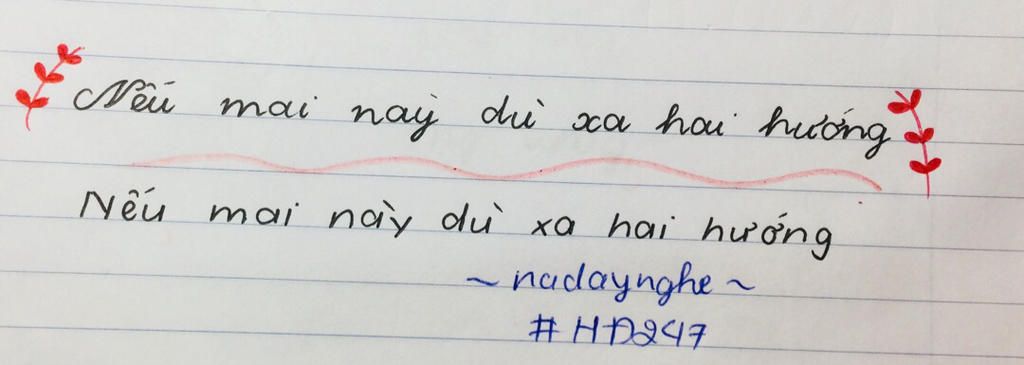 Nếu mai này dù xa hai hướng
Nếu mai này dù xa hai hướng
~ nadaynghe ~
#HD247